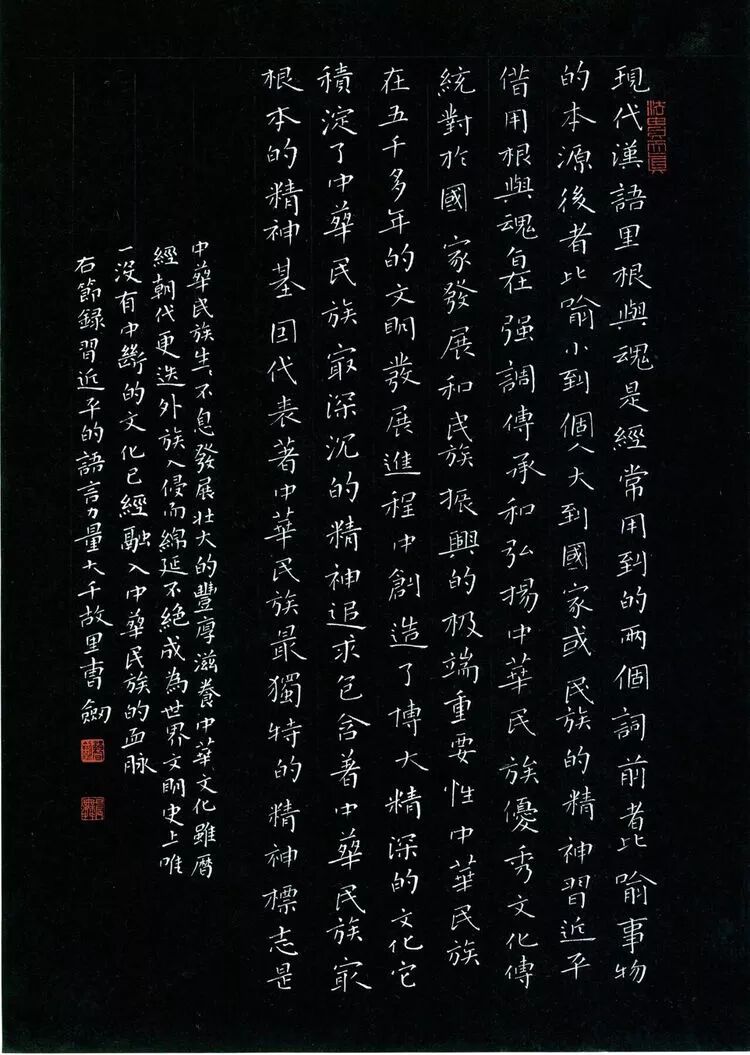 現代漢語里根與魂是經常用到的兩個詞前者比喻事物
的本源後者比喻小到個人大到國家或民族的精神習近平
借用根與魂旨在强調傳承和弘揚中華民族優秀文化傳
統對於國家發展和民族振興的极端重要性中華民族
在五千多年的文明發展進程中創造了博大精深的文化它
積淀了中華民族㝡深沉的精神追求包含著中華民族㝡
根本的精神基因代表著中華民族最獨特的精神標志是
中華民族生〻不息發展壯大的豐厚滋養中華文化雖曆
經朝代更迭外族入侵而綿延不絕成為世界文明史上唯
一没有中斷的文化已經融入中華民族的血脉
右節錄習近平的語言力量大千故里曹劒